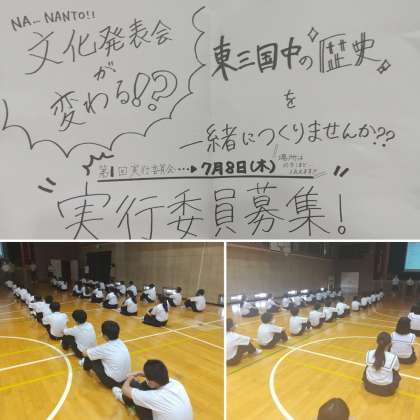 NA... NANTO!!
文化発表会
が
変わる!!?
東三国中の歴史
を
一緒につくりませんか??
第1回実行委員会・・・▶7月8日(木)
場所は
実行委員募集!